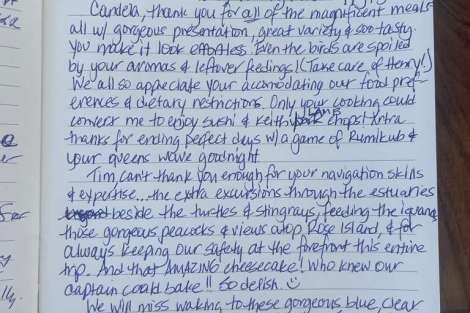 Candela, thank you for all of the magnificent meals
all w/ gorgeous presentation, great variety & soo tasty.
you make it look effortless. Even the birds are spoiled
by your aromas & leftover feedings! (Take care of Henry!)
We all so appreciate your acomodating our food pref-
erences & dietary restrictions. Only your cooking could
convert me to enjoy sushi & Keith LAMB chops! Xtra
thanks for ending perfect days w/ a game of Rumikub &
your queens wave goodnight
Tim, can't thank you enough for your navigation skills
& expertise... the extra excursions through the estuaries
beside the turtles & stingrays, feeding the iguana
those gorgeous peacocks & views atop Rose Island, & for
always keeping our safety at the forefront this entire
trip. And that AMAZING cheesecake! Who knew our
captain could bake!! So delish.
We will miss waking to these gorgeous blue, clear